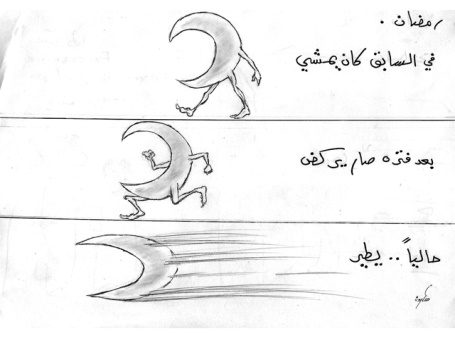 رمضان .
في السابق كان يمشي
بعد فتره صار يركض
حالياً .. يطير